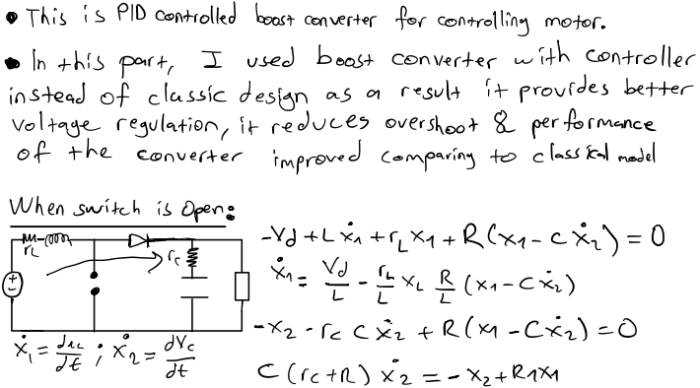 • This is PID controlled boost converter for controlling motor.
• In this part, I used boost converter with controller
instead of classic design as a result it provides better
voltage regulation, it reduces overshoot & performance
of the converter improved comparing to classical model
When switch is Open:
-Vd + Lẋ1 + rLx1 + R(x1 - Cẋ2) = 0
rL
rc
+
-
ẋ1 = Vd/L - rL/L xL R/L (x1 - Cẋ2)
-x2 - rc Cẋ2 + R(x1 - Cẋ2) = 0
ẋ1 = diL/dt ; ẋ2 = dVc/dt
C(rc+R) ẋ2 = -x2 + R1x1